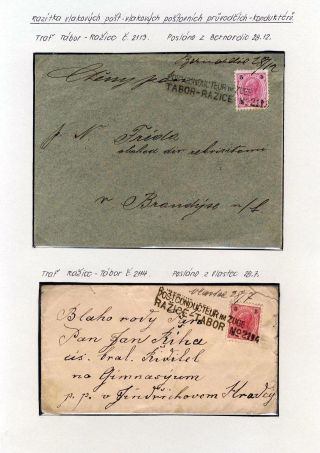 Razítka vlakových pošt - vlakových poštovních průvodčích - konduktérů
Trať Tábor - Ražice č. 2119. Posláno z Bernardic 28.12.
Bernardic 28/12
POSTCONDUCTEUR IM ZUGE
TABOR-RAZICE
P. N. Frída
v Brandýse n/L
Trať Ražice - Tábor č. 2114 Posláno z Vlastec 28.7.
Vlastec 28/7
POSTCONDUCTEUR IM ZUGE
RAŽICE-TABOR No 2114
Blahorodý Pán
Pan Jan Říha
cís. král. Ředitel
na Gimnasyum
p. p. v Jindřichovem Hradci